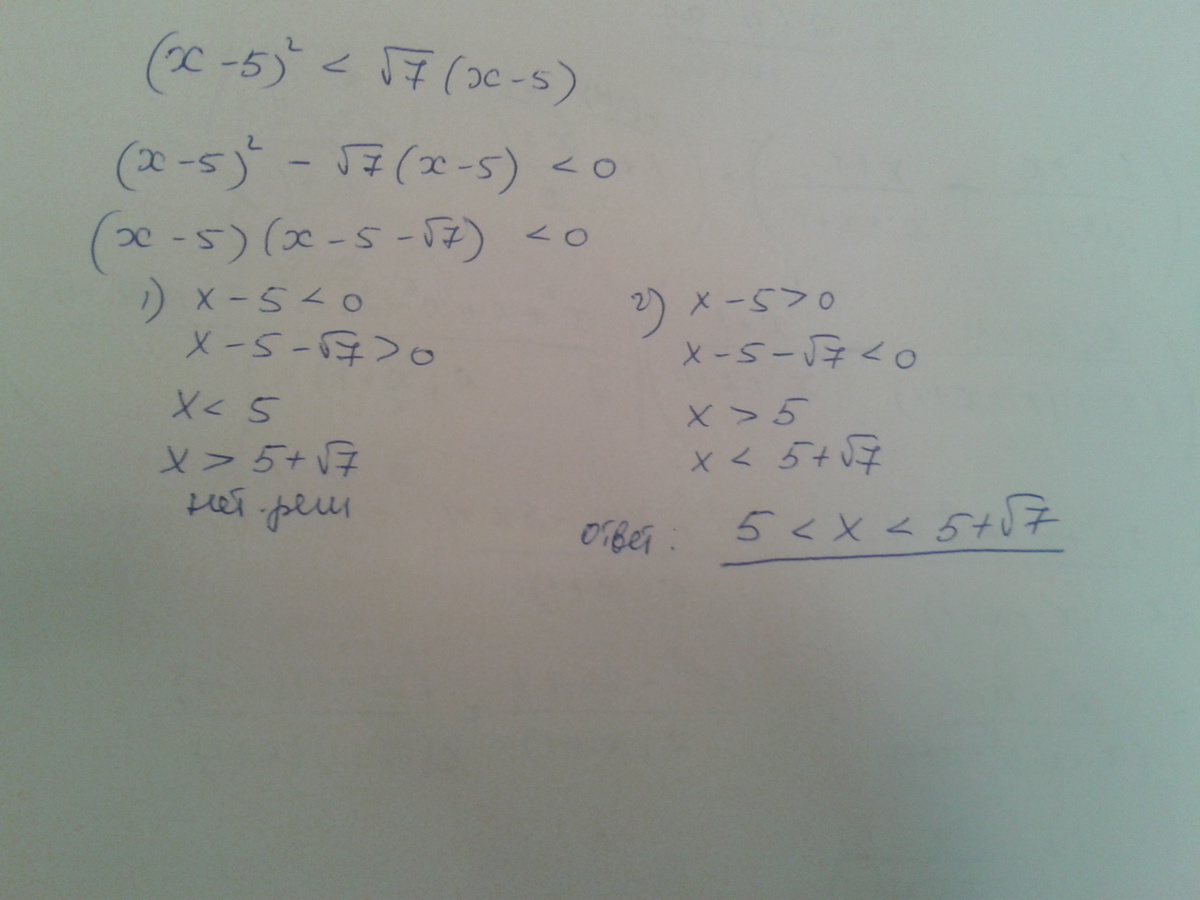 (x - 5)² < √7 (x - 5)
(x - 5)² - √7 (x - 5) < 0
(x - 5) (x - 5 - √7) < 0
1) x - 5 < 0
x - 5 - √7 > 0
x < 5
x > 5 + √7
нет реш
2) x - 5 > 0
x - 5 - √7 < 0
x > 5
x < 5 + √7
ответ: 5 < x < 5 + √7